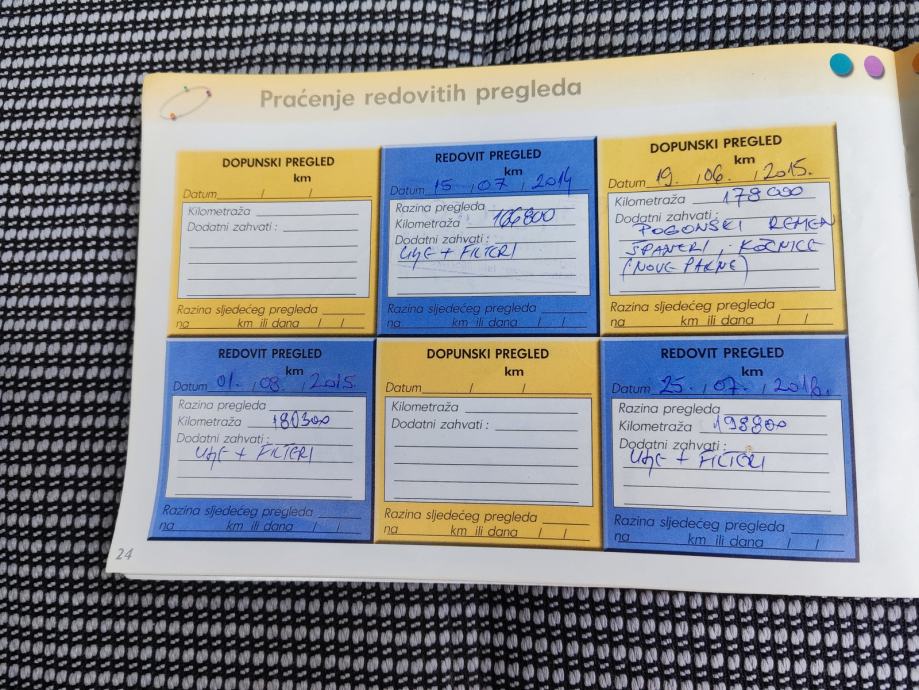 Praćenje redovitih pregleda
DOPUNSKI PREGLED
km
Datum / /
Kilometraža
Dodatni zahvati :
Razina sljedećeg pregleda
na km ili dana / /
REDOVIT PREGLED
km
Datum 15 / 07 / 2014
Razina pregleda
Kilometraža 166800
Dodatni zahvati :
ULJE + FILTERI
Razina sljedećeg pregleda
na km ili dana / /
DOPUNSKI PREGLED
km
Datum 19. / 06. / 2015.
Kilometraža 178000
Dodatni zahvati :
POGONSKI REMEN
ŠPANERI, KOČNICE
(NOVE PAKNE)
Razina sljedećeg pregleda
na km ili dana / /
REDOVIT PREGLED
km
Datum 01. / 08. / 2015
Razina pregleda
Kilometraža 180300
Dodatni zahvati :
ULJE + FILTERI
Razina sljedećeg pregleda
na km ili dana / /
DOPUNSKI PREGLED
km
Datum / /
Kilometraža
Dodatni zahvati :
Razina sljedećeg pregleda
na km ili dana / /
REDOVIT PREGLED
km
Datum 25. / 07. / 2016.
Razina pregleda
Kilometraža 198800
Dodatni zahvati :
ULJE + FILTERI
Razina sljedećeg pregleda
na km ili dana / /
24